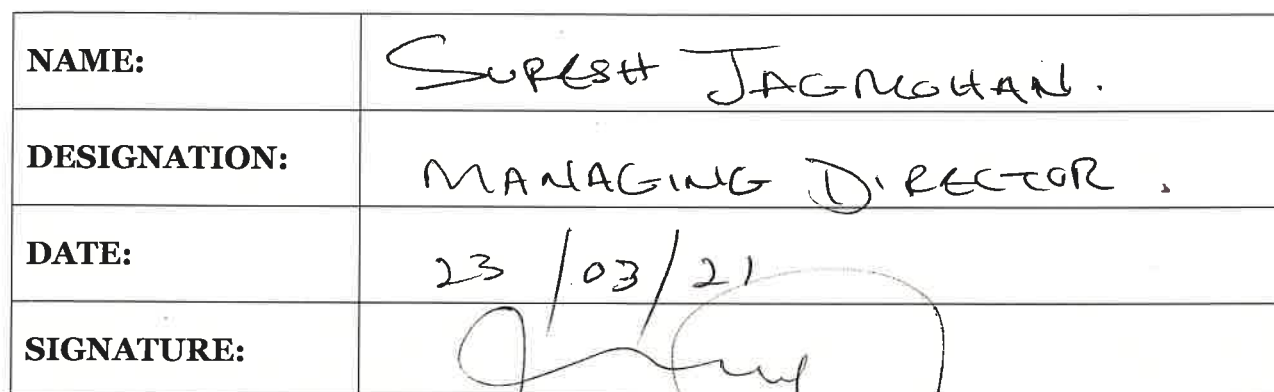 NAME: SURESH JAGMOHAN.
DESIGNATION: MANAGING DIRECTOR.
DATE: 23/03/21
SIGNATURE: